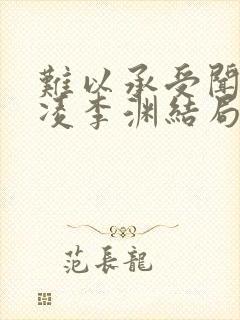 難以承受聞
凌李渊結局
范長龍